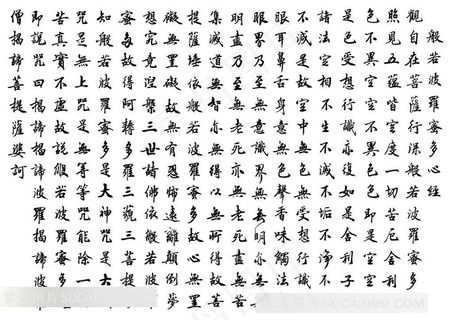 般若波羅蜜多心經
觀自在菩薩行深般若波羅蜜多時
照見五蘊皆空度一切苦厄舍利子
色不異空空不異色色即是空空即
是色受想行識亦復如是舍利子
是諸法空相不生不滅不垢不淨
不增不減是故空中無色無受想行識無
眼耳鼻舌身意無色聲香味觸法無
眼界乃至無意識界無無明亦無無
明盡乃至無老死亦無老死盡無苦
集滅道無智亦無得以無所得故菩
提薩埵依般若波羅蜜多故心無罣
礙無罣礙故無有恐怖遠離顛倒夢
想究竟涅槃三世諸佛依般若波羅
蜜多故得阿耨多羅三藐三菩提故
知般若波羅蜜多是大神咒是大明
咒是無上咒是無等等咒能除一切
苦真實不虛故說般若波羅蜜多咒
即說咒曰揭諦揭諦波羅揭諦波羅
僧揭諦菩提薩婆訶
SUCAI999.COM